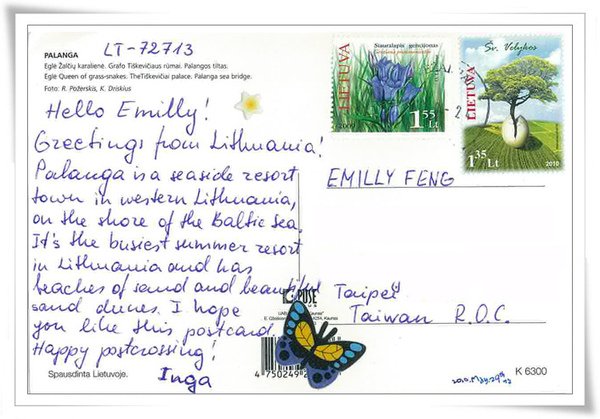 PALANGA LT-72713
Eglė Žalčių karalienė. Grafo Tiškevičiaus rūmai. Palangos tiltas.
Eglė Queen of grass-snakes. TheTiškevičiai palace. Palanga sea bridge.
Foto: R. Požerskis, K. Driskius
Hello Emilly!
Greetings from Lithuania!
Palanga is a seaside resort
town in western Lithuania,
on the shore of the Baltic sea.
It's the busiest summer resort
in Lithuania and has
beaches of sand and beautiful
sand dunes. I hope
you like this postcard.
Happy postcrossing!
Inga
Spausdinta Lietuvoje.
LIETUVA
Siauralapis gencijonas
2009
1.55 Lt
LIETUVA
Šv. Velykos
1.35 Lt
2010
EMILLY FENG
Taipei
Taiwan R.O.C.
4 750249 2
K 6300